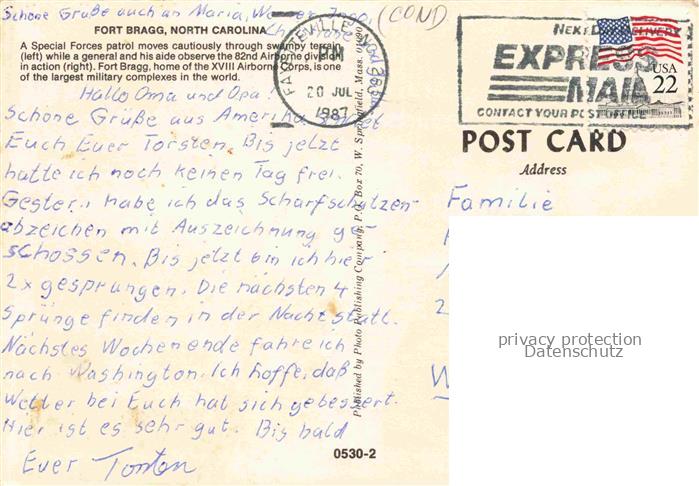 Schöne Grüße auch an Maria, Werner, Ingo,
(COND
FORT BRAGG, NORTH CAROLINA
A Special Forces patrol moves cautiously through swampy terrain
(left) while a general and his aide observe the 82nd Airborne division
in action (right). Fort Bragg, home of the XVIII Airborne Corps, is one
of the largest military complexes in the world.
Hallo Oma und Opa!
Schöne Grüße aus Amerika sendet
Euch Euer Torsten. Bis jetzt
hatte ich noch keinen Tag frei.
Gestern habe ich das Scharfschützen-
abzeichen mit Auszeichnung ge-
schossen. Bis jetzt bin ich hier
2x gesprungen. Die nächsten 4
Sprünge finden in der Nacht statt.
Nächstes Wochenende fahre ich
nach Washington. Ich hoffe, daß
Wetter bei Euch hat sich gebessert.
Hier ist es sehr gut. Bis bald
Euer Torsten
0530-2
Published by Photo Publishing Company, P.O. Box 70, W. Springfield, Mass. 01090
FAYETTEVILLE, NC 283
PM
20 JUL
1987
NEXT DAY DELIVERY
EXPRESS
MAIL
CONTACT YOUR POST OFFICE
USA
22
POST CARD
Address
Familie
privacy protection
Datenschutz